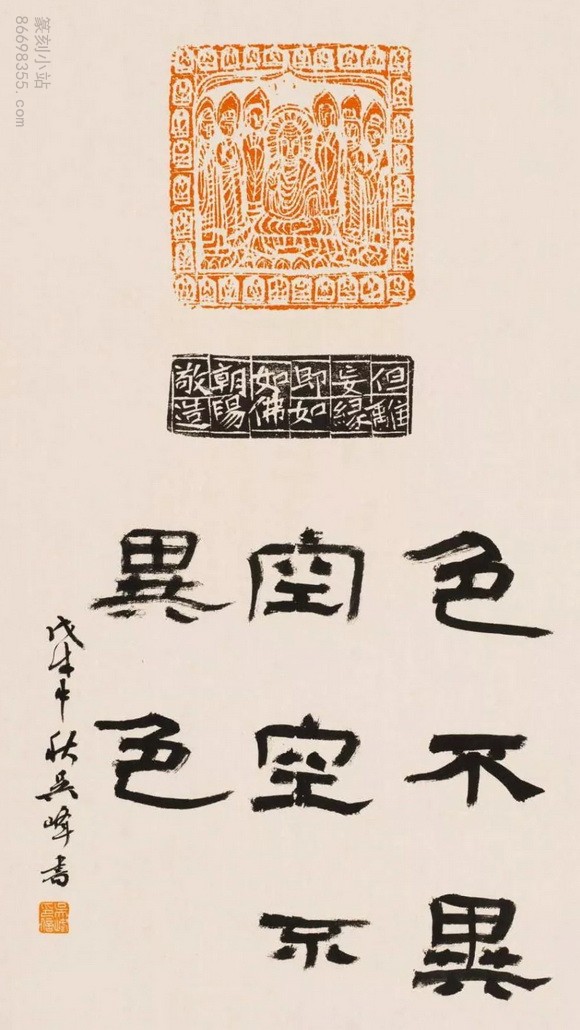 篆刻小站
86698355.com
但離
妄緣
即如
如佛
朝陽
敬造
色不異
空空不
異色
戊戌中秋吴峰書